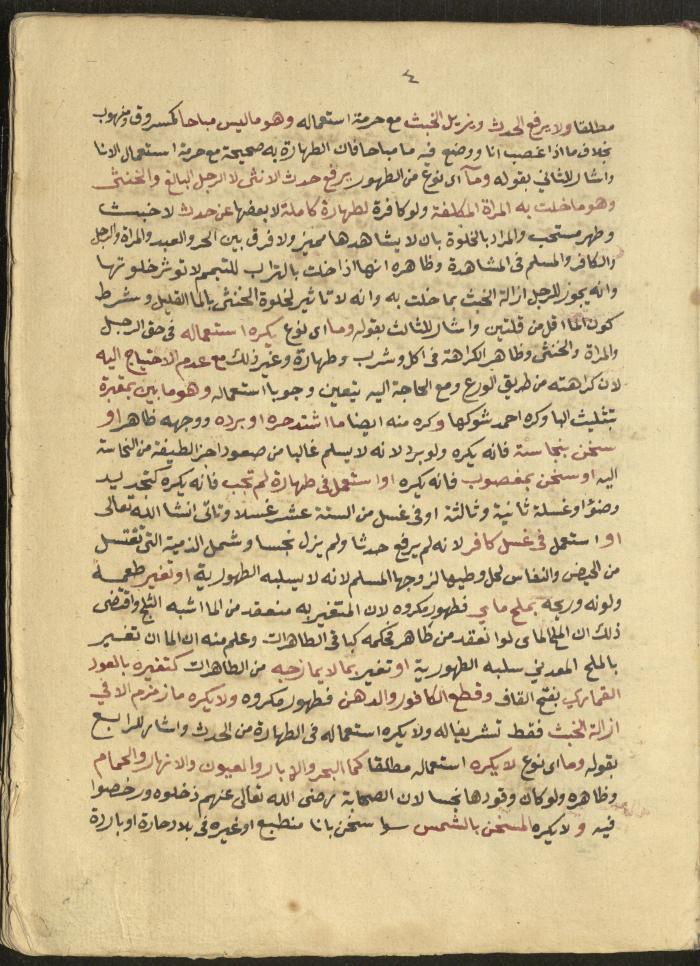 ٤
مطلقا ولا يرفع الحدث ويزيل الخبث مع حرمة استعماله وهو ما ليس مباحا كمسروق ومنهوب
بخلاف ما اذا غصب انا ووضع فيه ما مباحا فان الطهارة به صحيحة مع حرمة استعمال الانا
واشار للثاني بقوله وما اى نوع من الطهور يرفع حدث الانثى لا الرجل البالغ والخنثى
وهو ما خلت به المراة المكلفة ولو كافرة لطهارة كاملة لا بعضها عن حدث لا خبث
وطهر مستحب والمراد بالخلوة بان لا يشاهدها مميز ولا فرق بين الحر والعبد والمراة والرجل
والكافر والمسلم فى المشاهدة وظاهره انها اذا خلت بالتراب للتيمم لا توثر خلوتها
وانه يجوز للرجل ازالة الخبث بما خلت به وانه لا تاثير لخلوة الخنثى بالما القليل وشرط
كون الما اقل من قلتين واشار للثالث بقوله وما اى نوع يكره استعماله فى حق الرجل
والمراة والخنثى وظاهر الكراهة فى اكل وشرب وطهارة وغير ذلك مع عدم الاحتياج اليه
لان كراهته من طريق الورع ومع الحاجة اليه يتعين وجوبا استعماله وهو ما بير بمقبرة
بتثليث البا وكره احمد شوكها وكره منه ايضا ما اشتد حره او برده ووجهه ظاهر او
سخن بنجاسة فانه يكره ولو برد لانه لا يسلم غالبا من صعود اجزا لطيفة من النجاسة
اليه او سخن بمغصوب فانه يكره او استعمل فى طهارة لم تجب فانه يكره كتجديد
وضوء او غسلة ثانية وثالثة او فى غسل من الستة عشر غسلا وتاتى انشا الله تعالى
او استعمل فى غسل كافر لانه لم يرفع حدثا ولم يزل نجسا وشمل الذمية التى تغتسل
من الحيض والنفاس لحل وطيها لزوجها المسلم لانه لا يسلبه الطهورية او تغير طعمه
ولونه وريحه بملح ماى فطهور مكروه لان المتغير به منعقد من الما اشبه الثلج واقتضى
ذلك ان الملح الماى لو انعقد من طاهر فحكمه كباقى الطاهرات وعلم منه ان الما ان تغير
بالملح المعدني سلبه الطهورية او تغير بما لا يمازجه من الطاهرات كتغيره بالعود
القمارى بفتح القاف وقطع الكافور والدهن فطهور مكروه ولا يكره ما زمزم الا في
ازالة الخبث فقط تشريفا له ولا يكره استعماله فى الطهارة من الحدث واشار للرابع
بقوله وما اى نوع لا يكره استعماله مطلقا كما البحر والابار والعيون والانهار والحمام
وظاهره ولو كان وقودها نجسا لان الصحابة رضى الله تعالى عنهم دخلوه ورخصوا
فيه ولا يكره المسخن بالشمس سوا سخن بانا منطبع او غيره فى بلاد حارة او باردة